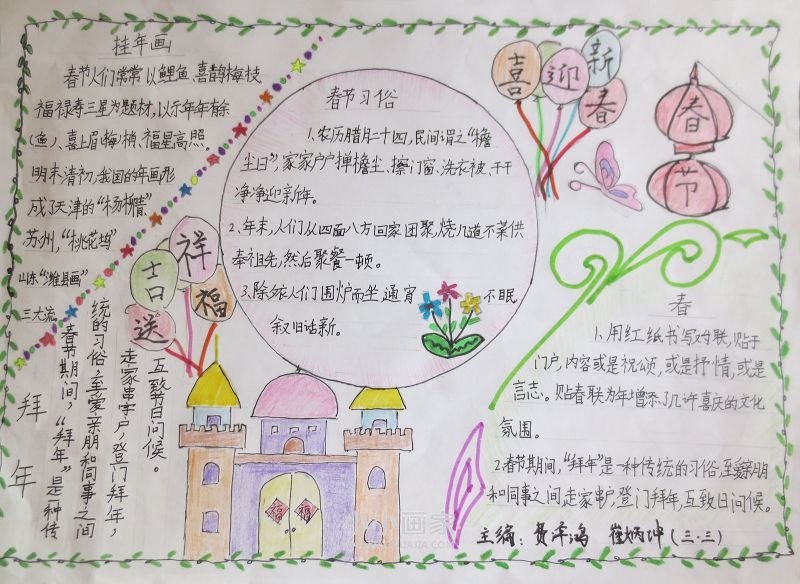 挂年画
春节人们常常以鲤鱼、喜鹊梅枝
福禄寿三星为题材,以示年年有余
(鱼)、喜上眉(梅)梢、福星高照。
明末清初,我国的年画形
成了天津的"杨柳青"
苏州,"桃花坞"
山东"潍县画"
三大流
拜年
春节期间,"拜年"是一种传
统的习俗,至爱亲朋和同事之间
走家串户,登门拜年,
互致节日问候。
吉祥
送福
春节习俗
1.农历腊月二十四,民间谓之"檐
尘日",家家户户掸檐尘、擦门窗、洗衣被、干干
净净迎新年。
2.年末,人们从四面八方回家团聚,烧几道不菜供
奉祖先,然后聚餐一顿。
3.除夜人们围炉而坐,通宵不眠
叙旧话新。
福
福
喜迎新春
春节
春
1、用红纸书写对联,贴于
门户,内容或是祝颂,或是抒情,或是
言志。贴春联为年增添了几许喜庆的文化
氛围。
2.春节期间,"拜年"是一种传统的习俗,至爱亲朋
和同事之间走家串户,登门拜年,互致日问候。
主编:
(三·三)